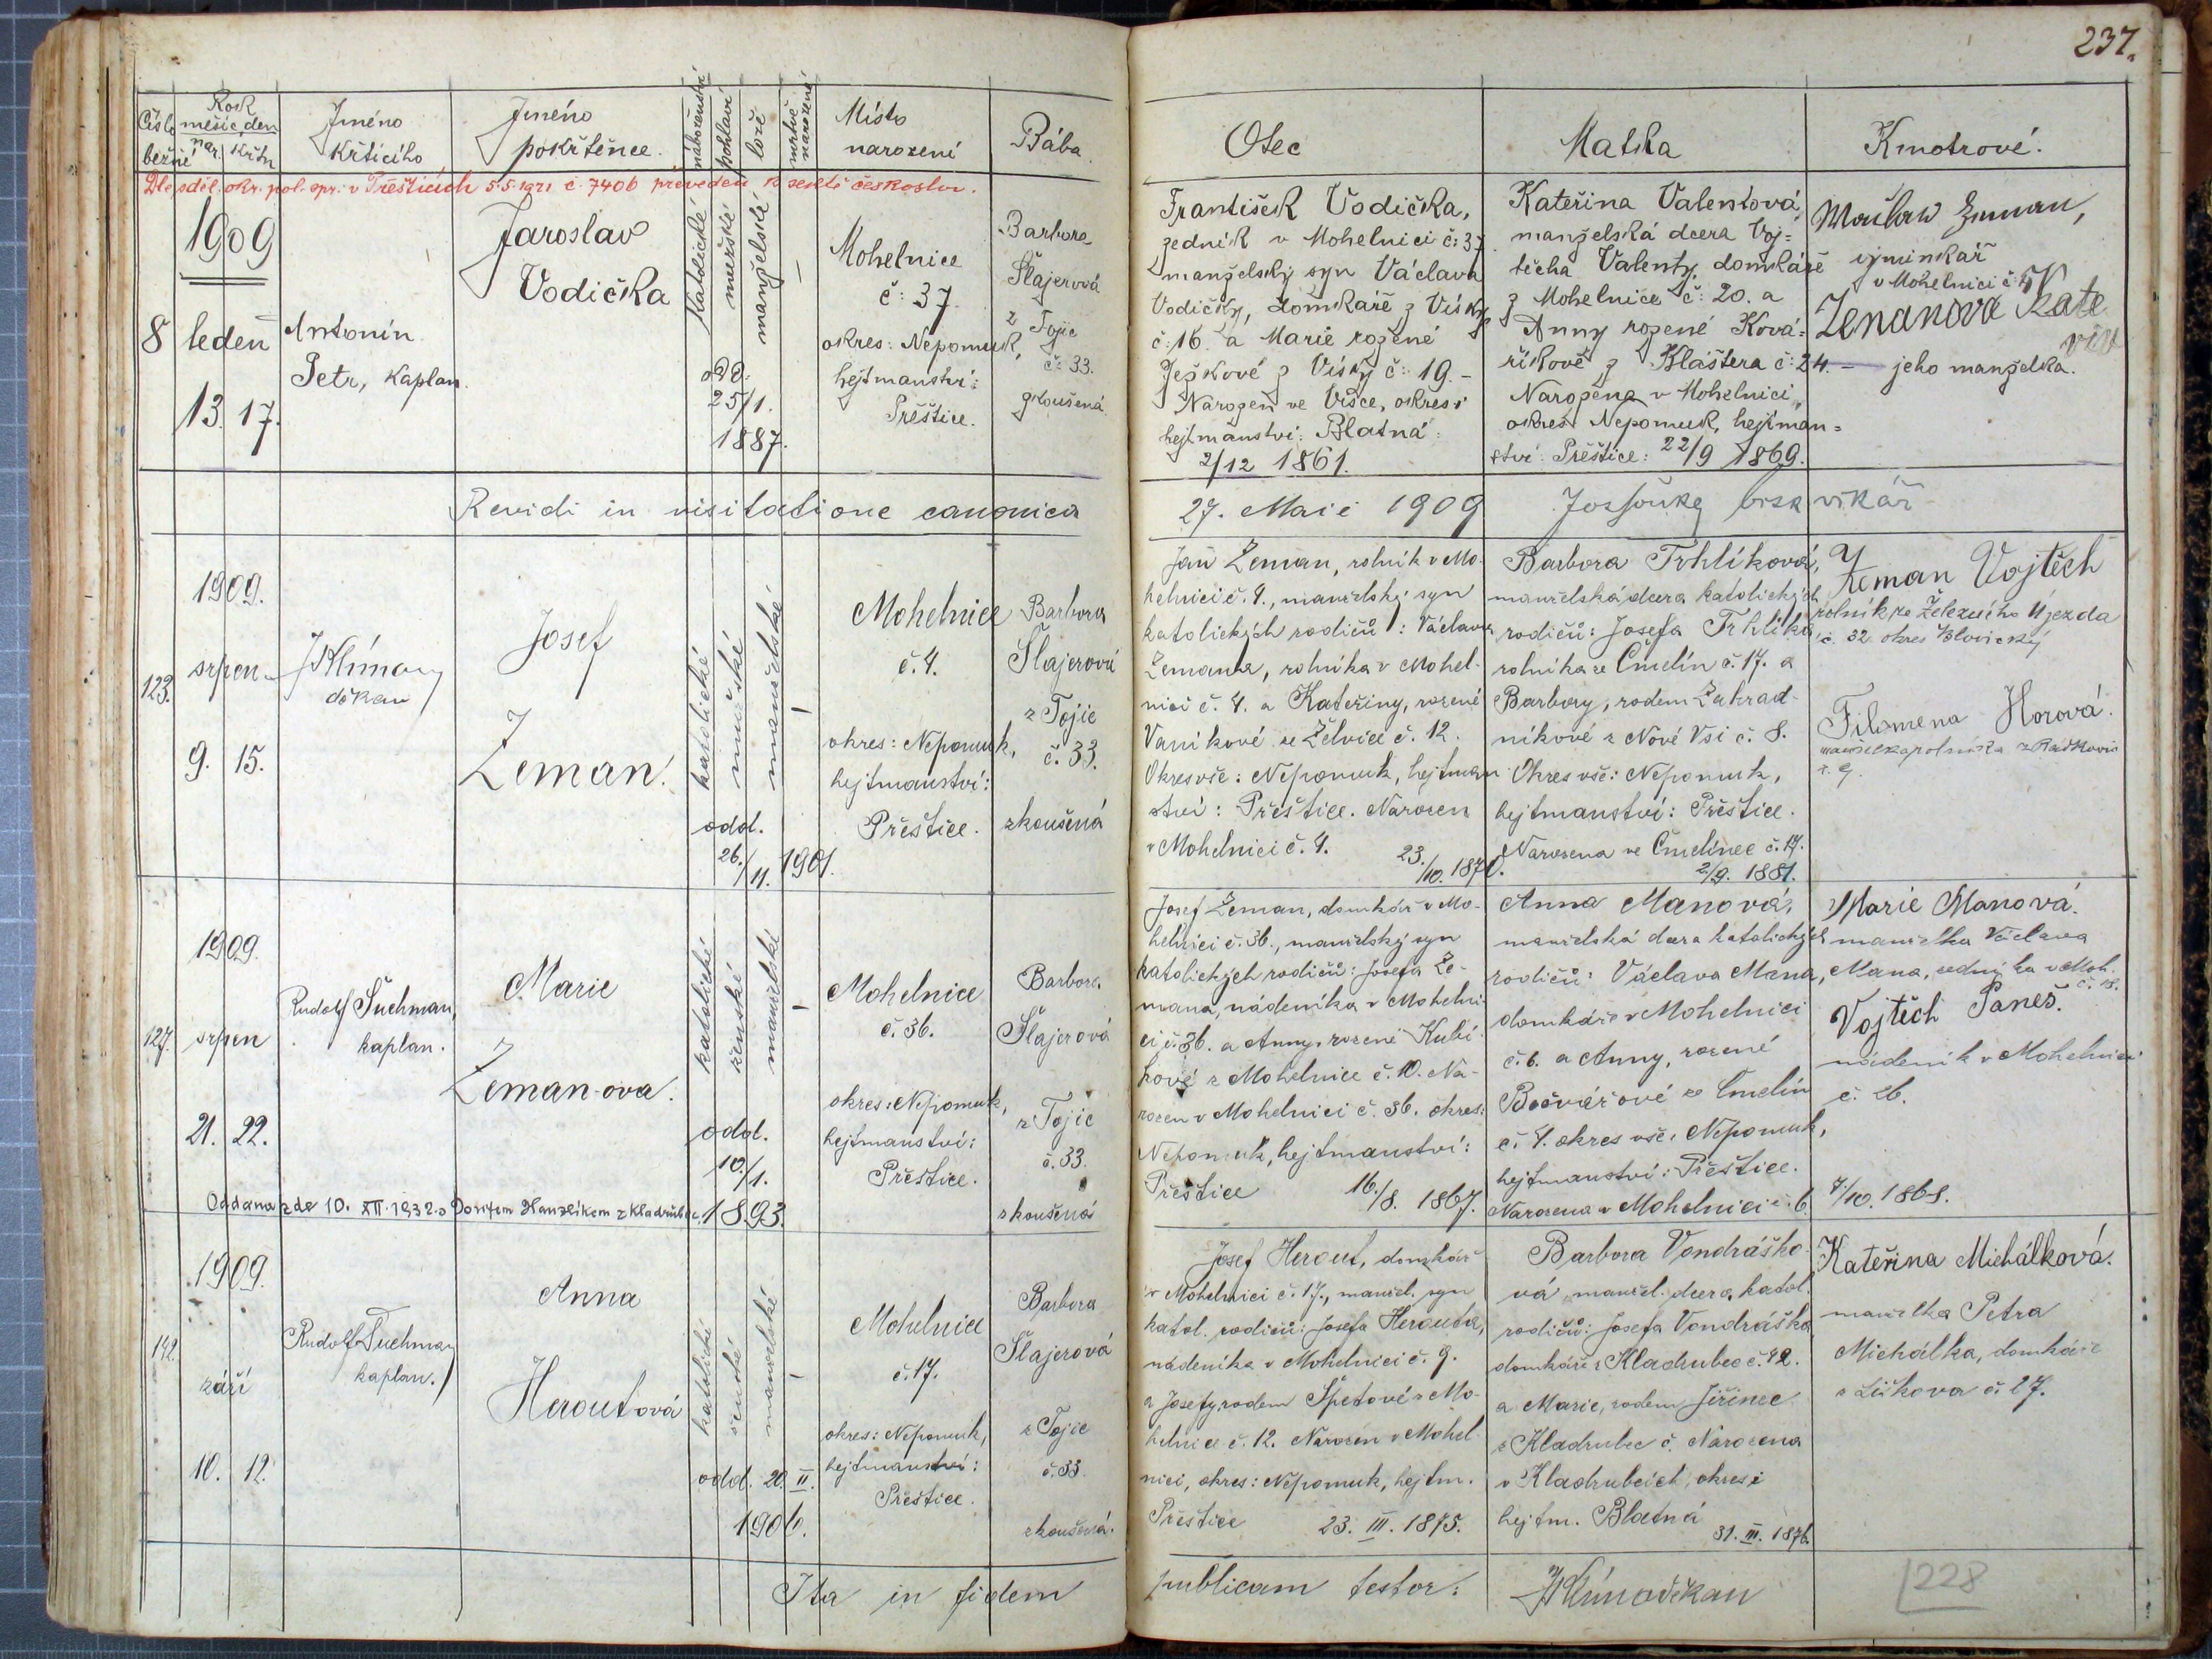 237.
Číslo běžné
Rok
měsíc, den
nar. křtu
Jméno křtícího
Jméno pokřtěnce.
náboženství
pohlaví
lože
mrtvě narozené
Místo narození
Bába.
Otec
Matka
Kmotrové.
Dle sděl. okr. pol. spr. v Přešticích 5.5.1921 č. 7406 převeden k sektě českoslov.
1909
8 leden
13. 17.
Antonín
Petr, kaplan.
Jaroslav
Vodička
katolické
mužské
manželské
odd.
25/1.
1887.
Mohelnice
č: 37.
okres: Nepomuk,
hejtmanství:
Přeštice.
Barbora
Šlajerová
z Tojic
č: 33.
zkoušená.
František Vodička,
zedník v Mohelnici č: 37
manželský syn Václava
Vodičky, domkáře z Vísky
č: 16. a Marie rozené
Ježkové z Vísky č: 19. -
Narozen ve Vísce, okres i
hejtmanství: Blatná:
2/12 1861.
Kateřina Valentová,
manželská dcera Voj=
těcha Valenty, domkáře
z Mohelnice č: 20. a
Anny rozené Ková=
říkové z Kláštera č: 24. -
Narozena v Mohelnici,
okres Nepomuk, hejtman=
ství: Přeštice: 22/9 1869.
výminkář
v Mohelnici č:
Zemanová Kate
jeho manželka.
Revidi in visitatione canonica
27. Maii 1909
vikář
1909.
123. srpen
9. 15.
J Klíma
děkan
Josef
Zeman.
katolické
mužské
manželské
odd.
26./11. 1901.
Mohelnice
č. 4.
okres: Nepomuk,
hejtmanství:
Přeštice.
Barbora
Šlajerová
z Tojic
č. 33.
zkoušená
Jan Zeman, rolník v Mo-
helnici č. 4., manželský syn
katolických rodičů: Václava
Zemana, rolníka v Mohel-
nici č. 4. a Kateřiny, rozené
Vaníkové ze Želvic č. 12.
Okres vše: Nepomuk, hejtman
ství: Přeštice. Narozen
v Mohelnici č. 4.
23./10. 1870.
Barbora Trhlíková,
manželská dcera katolických
rodičů: Josefa Trhlíka,
rolníka ze Čmelín č. 17. a
Barbory, rodem Zahrad-
níkové z Nové Vsi č. 8.
Okres vše: Nepomuk,
hejtmanství: Přeštice.
Narozena ve Čmelínec č. 17.
2/9. 1881.
Zeman Vojtěch
rolník ze Železného Újezda
č. 32 okres Blovický
Filomena Horová.
manželka rolníka z Radkovic
č. 9.
1909.
127. srpen
21. 22.
Rudolf Šuchman,
kaplan.
Marie
Zeman-ova.
katolické
ženské
manželské
odd.
10./1.
1893.
Oddana zde 10. XII. 1932 s Josefem Hanzlíkem z Kladrubec.
Mohelnice
č. 36.
okres: Nepomuk,
hejtmanství:
Přeštice.
Barbora
Šlajerová
z Tojic
č. 33.
zkoušená
Josef Zeman, domkář v Mo-
helnici č. 36., manželský syn
katolických rodičů: Josefa Ze-
mana, nádeníka v Mohelni-
ci č. 36. a Anny, rozené Kubí-
kové z Mohelnice č. 10. Na-
rozen v Mohelnici č. 36. okres:
Nepomuk, hejtmanství:
Přeštice 16./8. 1867.
Anna Manová,
manželská dcera katolických
rodičů: Václava Mana,
domkáře v Mohelnici
č. 6. a Anny, rozené
Bočvářové ze Čmelín
č. 4. okres vše: Nepomuk,
hejtmanství: Přeštice.
Narozena v Mohelnici č. 6. 7./10. 1868.
Marie Manová.
manželka Václava
Mana, zedníka v Moh.
č. 15.
Vojtěch Paneš.
nádeník v Mohelnici
č. 26.
1909.
142.
září
10. 12.
Rudolf Šuchman
kaplan.
Anna
Heroutová
katolické
ženské
manželské
odd. 20. II.
1906.
Mohelnice
č. 17.
okres: Nepomuk,
hejtmanství:
Přeštice.
Barbora
Šlajerová
z Tojic
č. 33.
zkoušená.
Josef Herout, domkář
v Mohelnici č. 17., manžel. syn
katol. rodičů: Josefa Herouta,
nádeníka v Mohelnici č. 9.
a Josefy, rodem Špetové z Mo-
helnice č. 12. Narozen v Mohel-
nici, okres: Nepomuk, hejtm.
Přeštice 23. III. 1875.
Barbora Vondráško-
vá manžel. dcera katol.
rodičů: Josefa Vondráška
domkáře z Kladrubec č. 42.
a Marie, rodem Jiřinec
z Kladrubec č. Narozena
v Kladrubcích, okres i
hejtm. Blatná
31. III. 1876.
Kateřina Michálková.
manželka Petra
Michálka, domkáře
z Liškova č. 27.
Ita in fidem publicam testor: J Klíma děkan
228